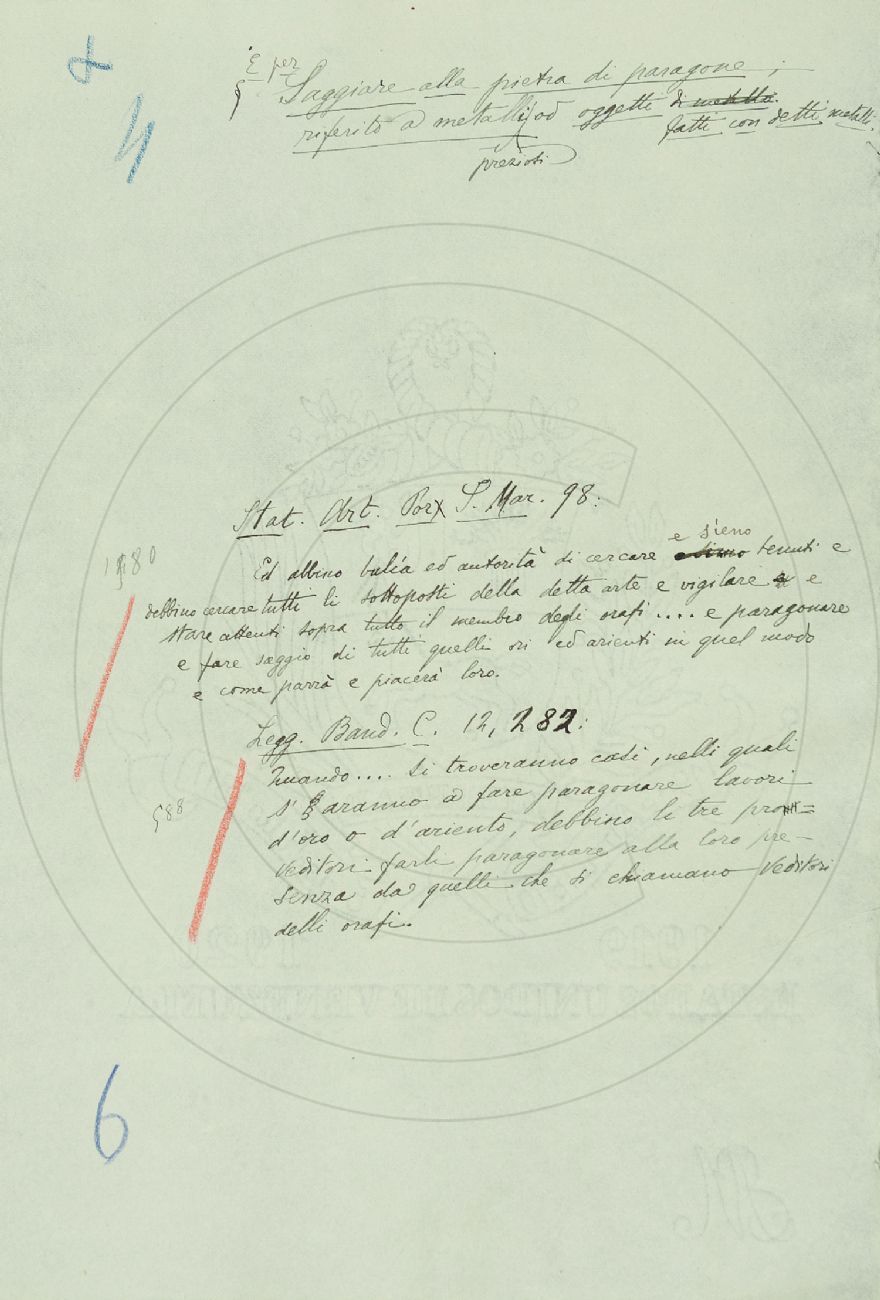 È per
§ Saggiare alla pietra di paragone;
riferito a metalli od oggetti di metallo
preziosi
fatti con detti metalli.
4
Stat. Art. Por S. Mar. 98:
e sieno
Ed abbino balía ed autorità di cercare tenuti e
debbino cercare tutti li sottoposti della detta arte e vigilare e
stare attenti sopra tutto il membro degli orafi .... e paragonare
e fare saggio di tutti quelli ori ed arienti in quel modo
e come parrà e piacerà loro.
Legg. Band. C. 12, 282:
Quando .... si troveranno casi, nelli quali
s'aranno a fare paragonare lavori
d'oro o d'ariento, debbino li tre prov=
veditori farli paragonare alla loro pre-
senza da quelli che si chiamano Veditori
delli orafi.
§88
6